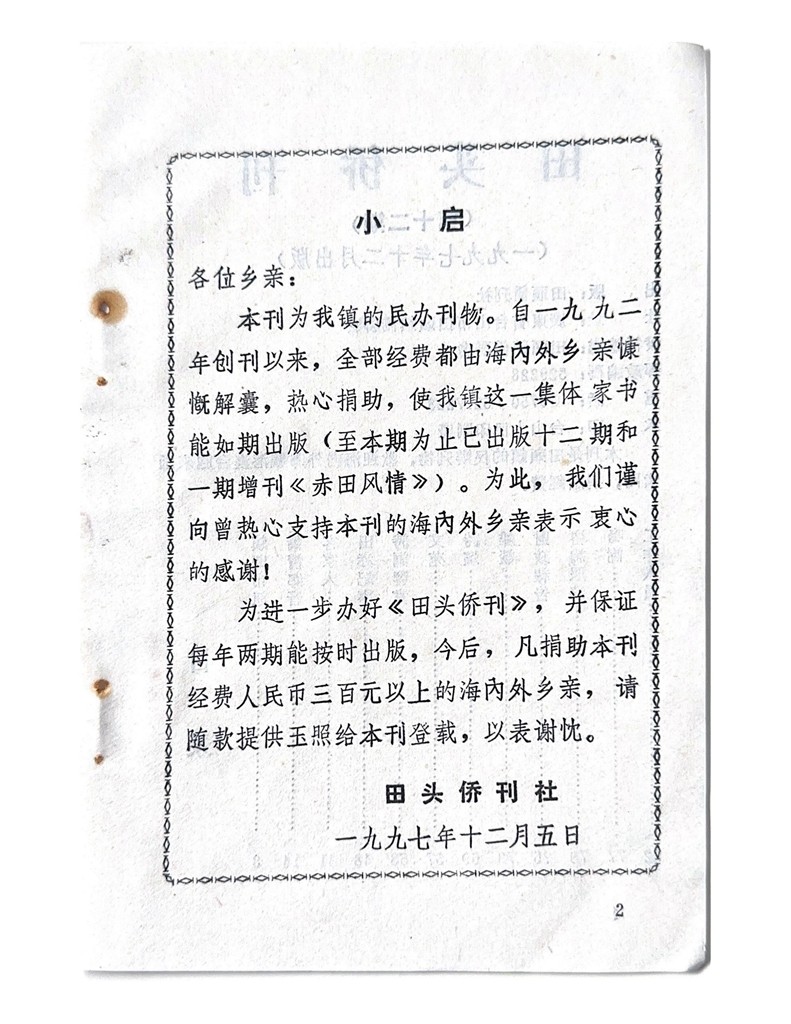 小启
各位乡亲：
本刊为我镇的民办刊物。自一九九二
年创刊以来，全部经费都由海内外乡亲慷
慨解囊，热心捐助，使我镇这一集体家书
能如期出版（至本期为止已出版十二期和
一期增刊《赤田风情》）。为此，我们谨
向曾热心支持本刊的海内外乡亲表示衷心
的感谢！
为进一步办好《田头侨刊》，并保证
每年两期能按时出版，今后，凡捐助本刊
经费人民币三百元以上的海内外乡亲，请
随款提供玉照给本刊登载，以表谢忱。
田头侨刊社
一九九七年十二月五日
2